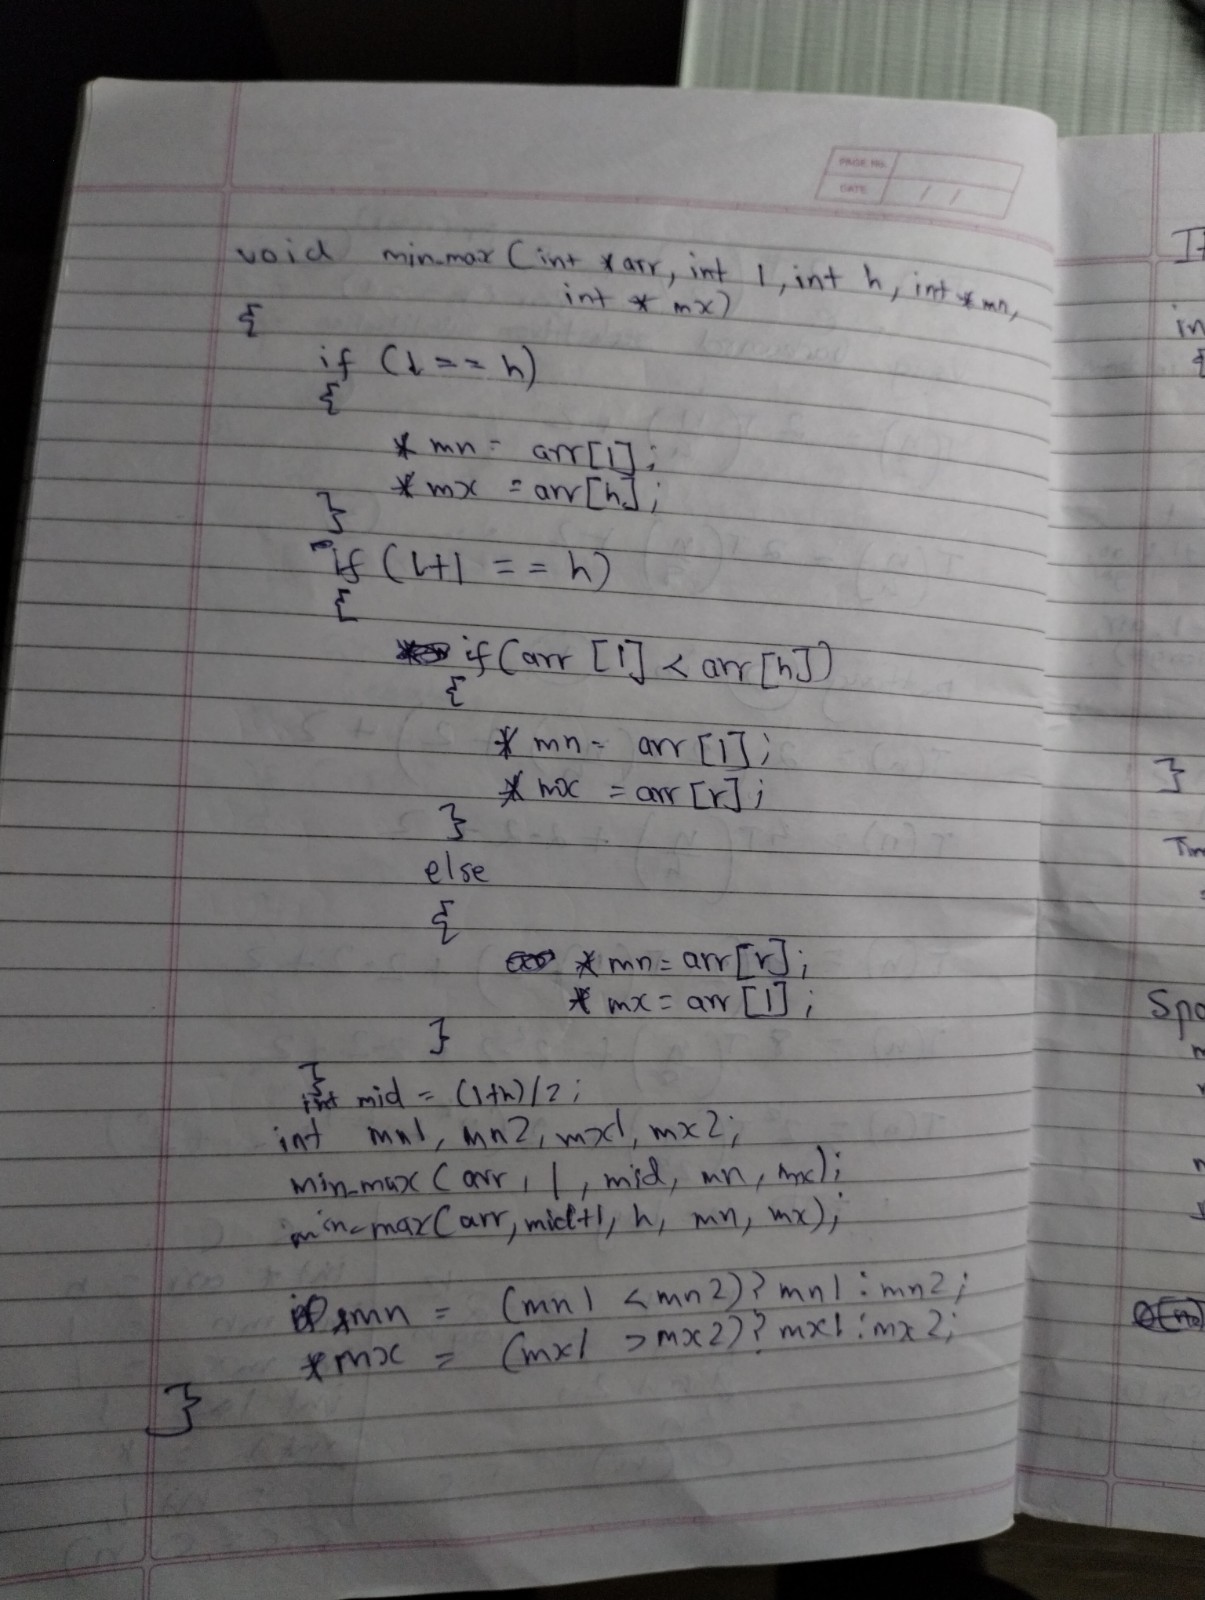 PAGE No.
DATE / /
void min_max (int *arr, int l, int h, int * mn,
int * mx)
{
if (l == h)
{
* mn = arr[l];
* mx = arr[h];
}
if (l+1 == h)
{
if (arr [l] < arr [h])
{
* mn = arr [l];
* mx = arr [r];
}
else
{
* mn = arr[r];
* mx = arr [l];
}
}
int mid = (l+h)/2;
int mn1, mn2, mx1, mx2;
min_max (arr, l, mid, mn, mx);
min_max (arr, mid+1, h, mn, mx);
*mn = (mn1 < mn2)? mn1 : mn2;
*mx = (mx1 > mx2)? mx1 : mx2;
}
{
}